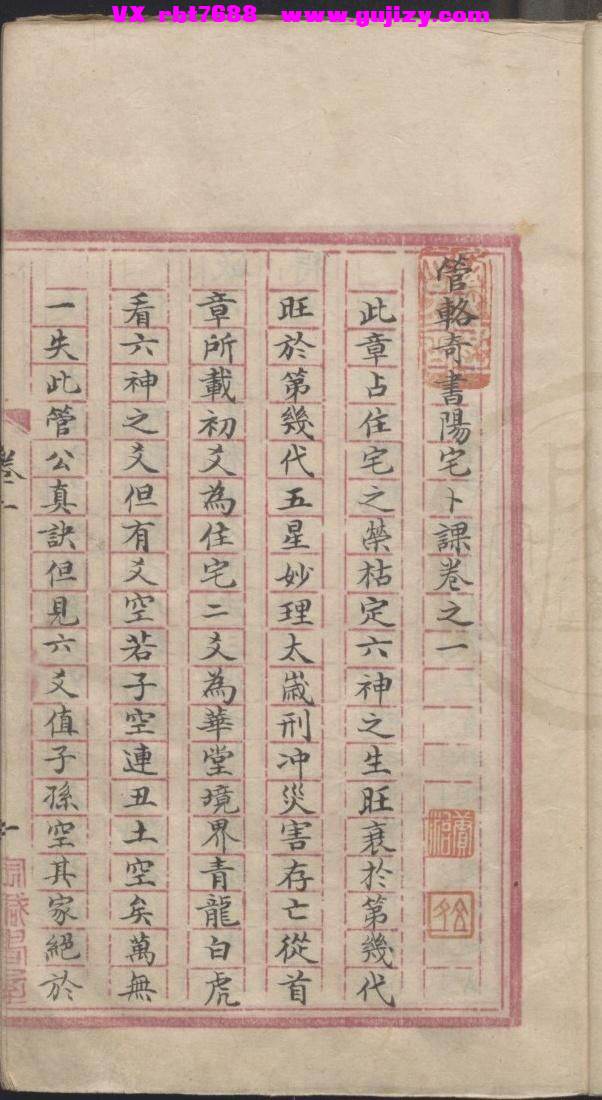 VX-rbt7688 www.gujizy.com
管輅奇書陽宅卜課卷之一
此章占住宅之榮枯定六神之生旺衰於第幾代
旺於第幾代五星妙理太嵗刑冲災害存亡從首
章所載初爻為住宅二爻為華堂境界青龍白虎
看六神之爻但有爻空若子空連丑土空矣萬無
一失此管公真訣但見六爻值子孫空其家絕於
卷一
一